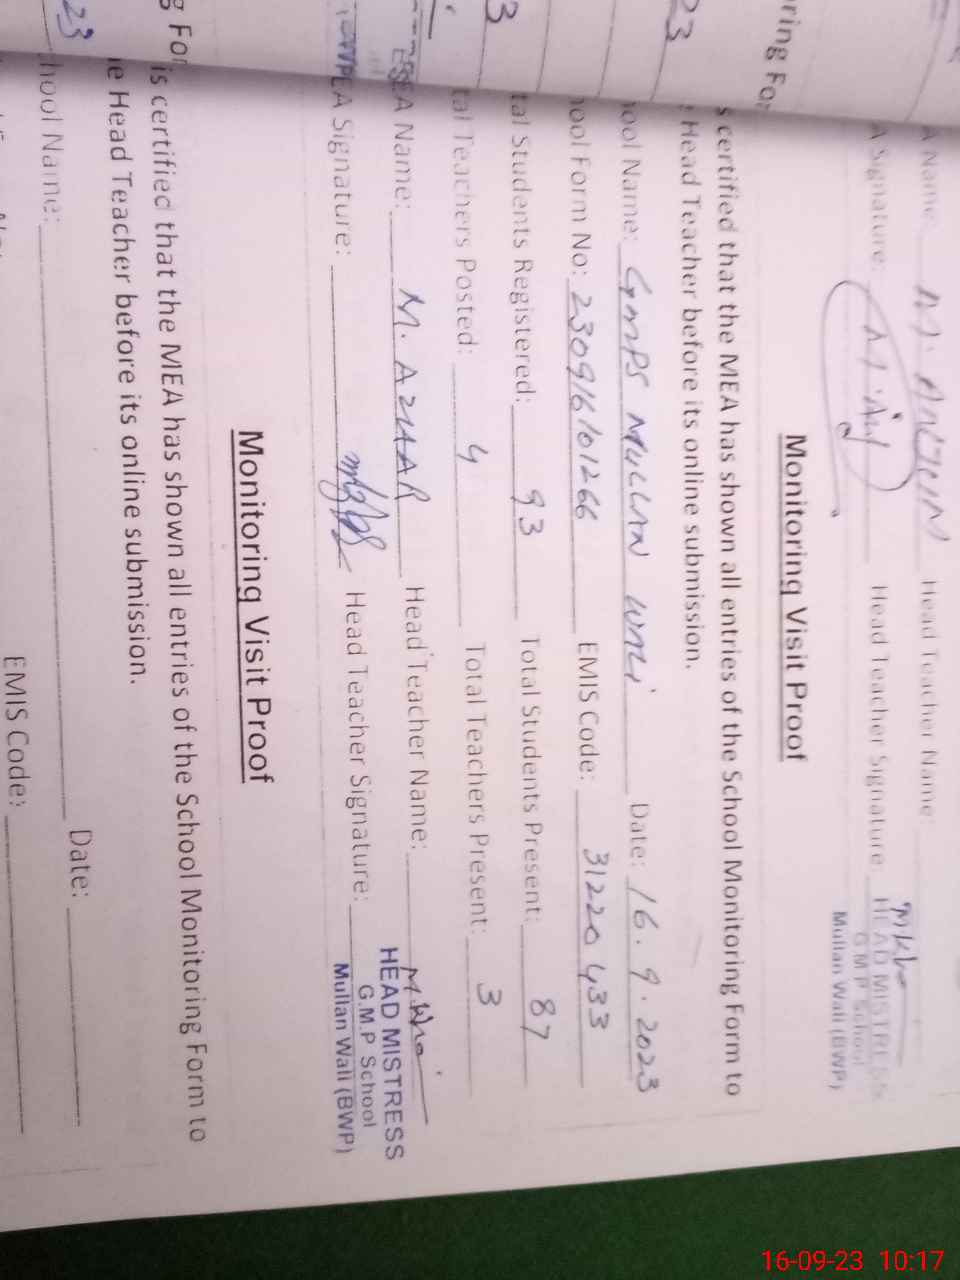 A Name: Head Teacher Name:
A Signature: Head Teacher Signature:
HEAD MISTRESS
G.M.P School
Mullan Wali (BWP)
Monitoring Visit Proof
s certified that the MEA has shown all entries of the School Monitoring Form to
Head Teacher before its online submission.
ool Name: GMPS MULLAN WALI Date: 16.9.2023
ool Form No: 230916101266 EMIS Code: 31220433
tal Students Registered: 93 Total Students Present: 87
tal Teachers Posted: 4 Total Teachers Present: 3
EA Name: M. AZHAR Head Teacher Name:
EA Signature: Head Teacher Signature:
HEAD MISTRESS
G.M.P School
Mullan Wali (BWP)
Monitoring Visit Proof
is certified that the MEA has shown all entries of the School Monitoring Form to
e Head Teacher before its online submission.
hool Name: Date:
EMIS Code:
ring For
23
3
g For
23
16-09-23 10:17